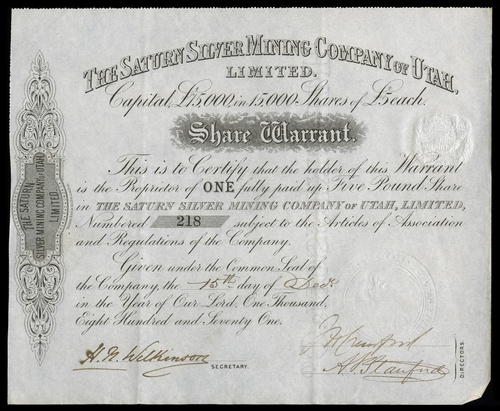 THE SATURN SILVER MINING COMPANY OF UTAH,
LIMITED.
Capital, £75,000, in 15,000 Shares of £5 each.
Share Warrant.
This is to Certify that the holder of this Warrant
is the Proprietor of ONE fully paid up Five Pound Share
in THE SATURN SILVER MINING COMPANY OF UTAH, LIMITED,
Numbered 218 subject to the Articles of Association
and Regulations of the Company.
Given under the Common Seal of
the Company, the 15th day of Decr.
in the Year of Our Lord, One Thousand,
Eight Hundred and Seventy One.
H. N. Wilkinson
SECRETARY.
DIRECTORS.
THE SATURN
SILVER MINING COMPANY OF UTAH
LIMITED